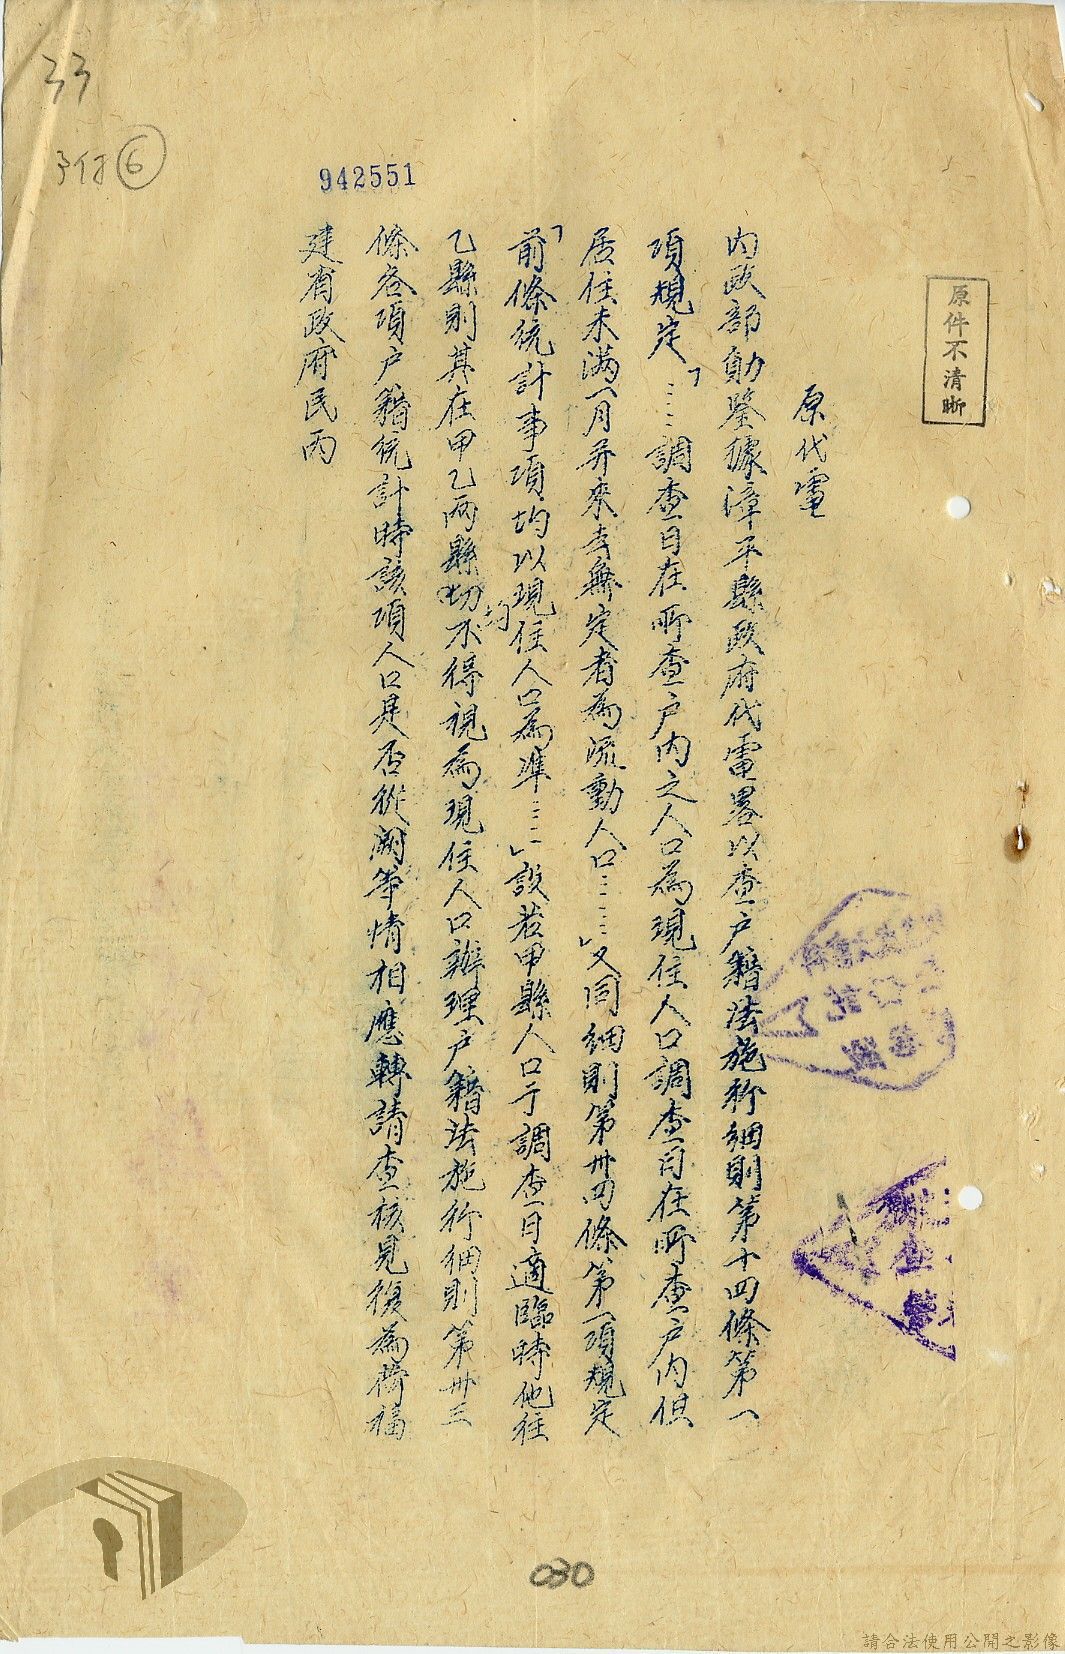 33
予付⑥
942551
原件不清晰
原代電
內政部勛鑒據漳平縣政府代電畧以查户籍法施行細則第十四條第一
項規定「……調查日在所查户內之人口為現住人口調查日在所查户內但
居住未滿一月并來去無定者為流動人口……」又同細則第卅四條第一項規定
「前條統計事項均以現住人口為準……」設若甲縣人口于調查日適臨時他往
乙縣則其在甲乙兩縣均不得視為現住人口辦理户籍法施行細則第卅三
條各項户籍統計時該項人口是否從闕等情相應轉請查核見復為荷福
建省政府民丙
030
請合法使用公開之影像